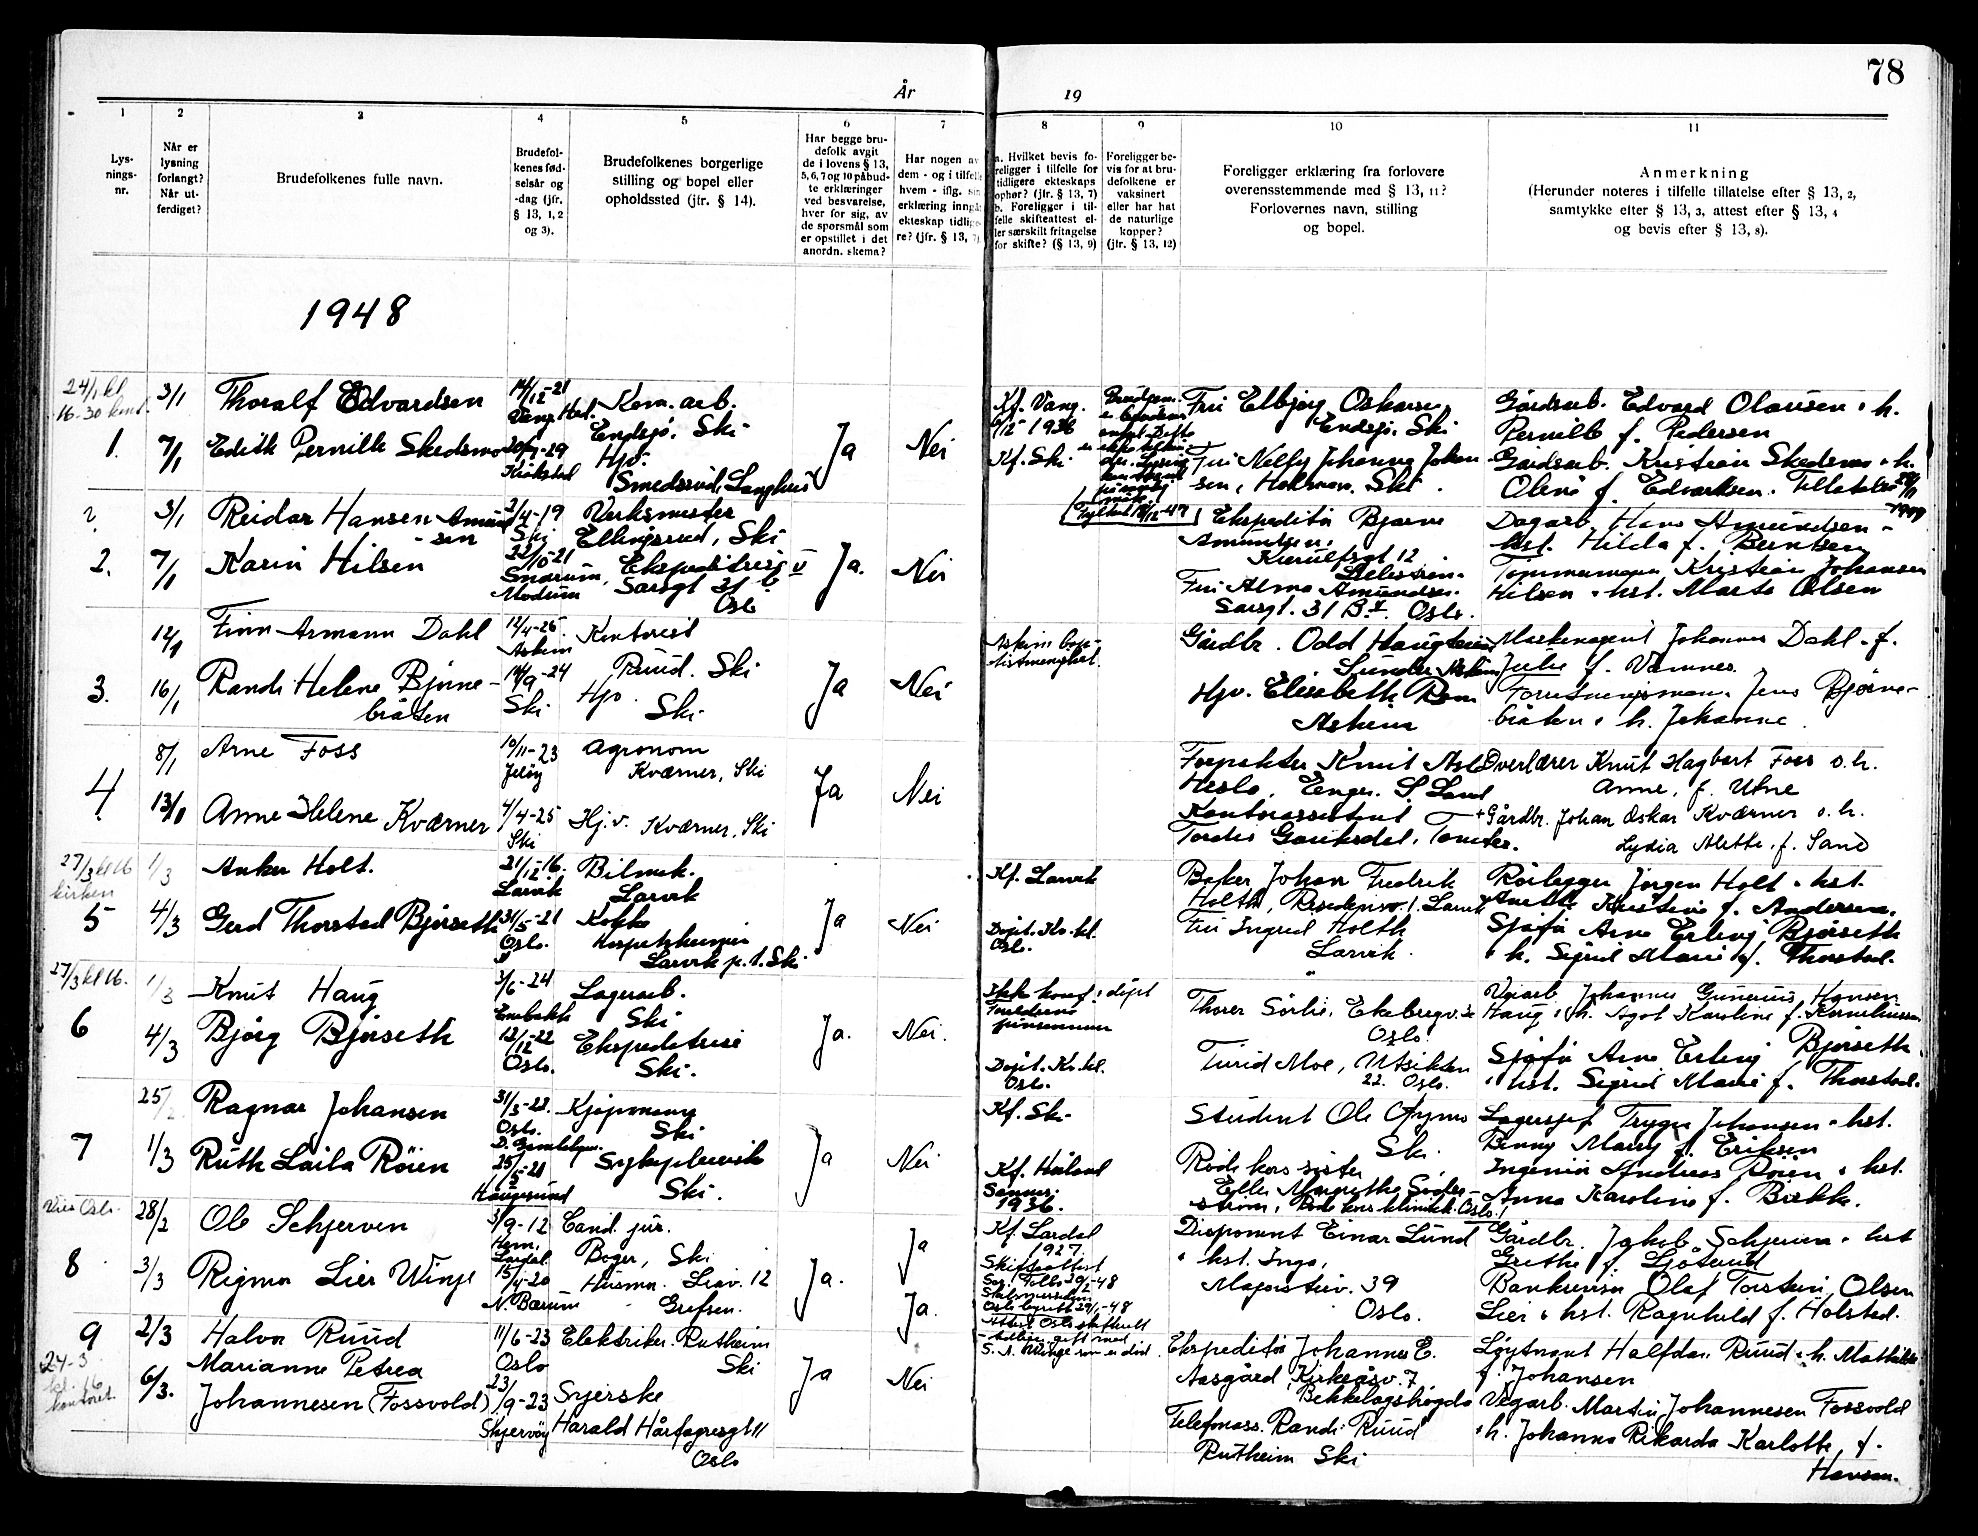 78
År
19
1
Lys-
nings-
nr.
2
Når er
lysning
forlangt?
Når ut-
ferdiget?
3
Brudefolkenes fulle navn.
4
Brudefol-
kenes fød-
selsår og
-dag (jfr.
§ 13, 1, 2
og 3).
5
Brudefolkenes borgerlige
stilling og bopel eller
opholdssted (jfr. § 14).
6
Har begge bru-
defolk avgit
de i lovens § 13,
5, 6, 7 og 10 påbud-
te erklæringer
ved besvarelse,
hver for sig, av
de spørsmål som
er opstillet i det
anordn. skema?
7
Har nogen av
dem - og i tilfelle
hvem - iflg. sin
erklæring inngå
ekteskap tidlige-
re? (jfr. § 13, 7)
8
a. Hvilket bevis fo-
religger i tilfelle for
tidligere ekteskaps
ophør? (jfr. § 13, 7)
b. Foreligger i til-
felle skifteattest el-
ler særskilt fritagelse
for skifte? (§ 13, 9)
9
Foreligger be-
vis for at bru-
defolkene er
vaksinert
eller har hat
de naturlige
kopper?
(jfr. § 13, 12)
10
Foreligger erklæring fra forlovere
overensstemmende med § 13, 11?
Forlovernes navn, stilling
og bopel.
11
Anmerkning
(Herunder noteres i tilfelle tillatelse efter § 13, 2,
samtykke efter § 13, 3, attest efter § 13, 4
og bevis efter § 13, 8).
1948
24/1 kl
16-30
1.
3/1
7/1
Thoralf Edvardsen
Edith Pernille Skedsmo
14/12-21
Vang, Hed.
-29
Kråkstad
Kom. arb.
Endsjø, Ski
Hjv.
Smedsrud, Langhus
Ja
Nei
Kf. Vang.
1936
Kf. Ski
Fru Elbjørg Oskarsen
Endsjø, Ski
Fru Nelfy Johanna Johan-
sen, Holmen. Ski.
Gårdsarb. Edvard Olausen o. h.
Pernille f. Pedersen
Gårdsarb. Kristian Skedsmo o. h.
Olena f. Edvardsen. Tillatelse
2.
3/1
7/1
Reidar Hansen Amund-
sen
Karin Hilsen
2/4-19
Ski
22/10-21
Snarum,
Modum
Verksmester
Ellingsrud, Ski
Ekspeditrise
Sarsgt 31
Oslo
Ja.
Nei
Ekspeditør Bjarne
Amundsen,
Kierulfsgt 12
Lillestrøm.
Fru Alma Amundsen.
Sarsgt. 31 B Oslo.
Dagarb. Hans Amundsen o.
hst. Hilda f. Berntsen
Tømmermann Kristian Johansen
Hilsen o. hst. Marta Olsen
3.
12/1
16/1
Finn Armann Dahl
Randi Helene Bjørne-
bråten
12/4-25.
Askim
14/9-24
Ski
Kontorist
Ruud. Ski
Hjv.
Ski
Ja
Nei
Askim bap-
tistmenighet.
Gårdbr. Odd Haugstein
Askim
Hjv. Elisabeth Rom
Askim
Maskinagent Johannes Dahl o. f.
Julie f. Vamnes
Forretningsmann Jens Bjørne-
bråten o. h. Johanne.
4.
8/1
13/1
Arne Foss
Anne Helene Kværner
10/11-23
Jeløy
4/4-25
Ski
Agronom
Kværner, Ski
Hj.v. Kværner, Ski
Ja
Nei
Forpakter Knut Asle
Heslo, Enger. S. Land
Kontorassistent
Tordis Gaukerdal, Tomter.
Overlærer Knut Hagbart Foss o. h.
Anne, f. Utne
Gårdbr. Johan Oskar Kværner o. h.
Lydia Alette, f. Sand
27/3 kl 16
kirken
5
1/3
4/3
Anker Holt.
Gerd Thorstad Bjørseth
21/12-16.
Larvik
31/5-21
Oslo.
Bilmek.
Larvik
Kokke
Larvik p. t. Ski
Ja
Nei
Kf. Larvik
Døpt. Kr. kl.
Oslo.
Baker Johan Fredrik
Holth, Larvik
Fru Ingrid Holth
Larvik.
Rørlegger Jørgen Holt o. hst.
Kristine f. Andersen.
Sjåfør Arne Erling Bjørseth
o. h. Sigrid Marie f. Thorstad.
27/3 kl 16.
6
1/3
4/3
Knut Haug
Bjørg Bjørseth
3/6-24
Enebakk
12/12-22
Oslo.
Lagerarb.
Ski
Ekspeditrise
Ski.
Ja.
Nei.
Ikke konf. døpt
Døpt. Kr. kl.
Oslo.
Thorer Sørlie, Ekebergv.
Oslo.
Turid Moe, Utsikten
22. Oslo.
Vegarb. Johannes Gunerius Hansen
Haug o. h. Agot Karoline f. Korneliussen
Sjåfør Arne Erling Bjørseth
o. hst. Sigrid Marie f. Thorstad.
7
25/2
1/3
Ragnar Johansen
Ruth Laila Røien
31/3-23.
Oslo.
25/5-21
Haugesund
Kjøpmann
Ski
Sykepleierske
Ski.
Ja
Nei
Kf. Ski
1936.
Student Ole
Ski.
Røde kors søster
Ellen Margrethe Søder-
strøm, Røde kors klinikk. Oslo.
Lagersjef Trygve Johansen o. hst.
Benny Mary f. Eriksen
Ingeniør Andreas Røien o. hst.
Anna Karoline f. Bakke.
Vies Oslo.
8
28/2
3/3
Ole Schjerven
Rigmor Lier Winge
3/9-12
Hem,
Lardal.
15/4-20
N. Bærum
Cand. jur.
Boger, Ski
Husmor. Leiv. 12
Grefsen.
Ja.
Ja
Ja.
Kf. Lardal
1927.
Skifteattest
Follo 29/1-48
Oslo byrett 29/1-48
Disponent Einar Lund
o. hst. Inga,
Majorstuv. 39
Oslo.
Gårdbr. Jakob Schjerven o. hst
Grethe f. Ljøterud
Bankrevisor Olaf Torstein Olsen
Lier o. hst. Ragnhild f. Holstad.
9
24-3
kl. 16
kontoret.
2/3
6/3.
Halvor Ruud
Marianne Petrea
Johannesen (Fossvold)
11/6-23
Oslo
23/9-23
Skjervøy
Elektriker. Rutheim
Ski
Syerske
Harald Hårfagresgt 11
Oslo
Ja
Nei
Ekspeditør Johannes E.
Aasgård, Kirkeåsv. 7,
Bekkelagshøgda
Telefonass. Randi Ruud
Rutheim Ski
Løytnant Halfdan Ruud o. h. Mathilde
f. Johansen
Vegarb. Martin Johannesen Fossvold
o. h. Johanna Rikarda Karlotte, f.
Hansen.